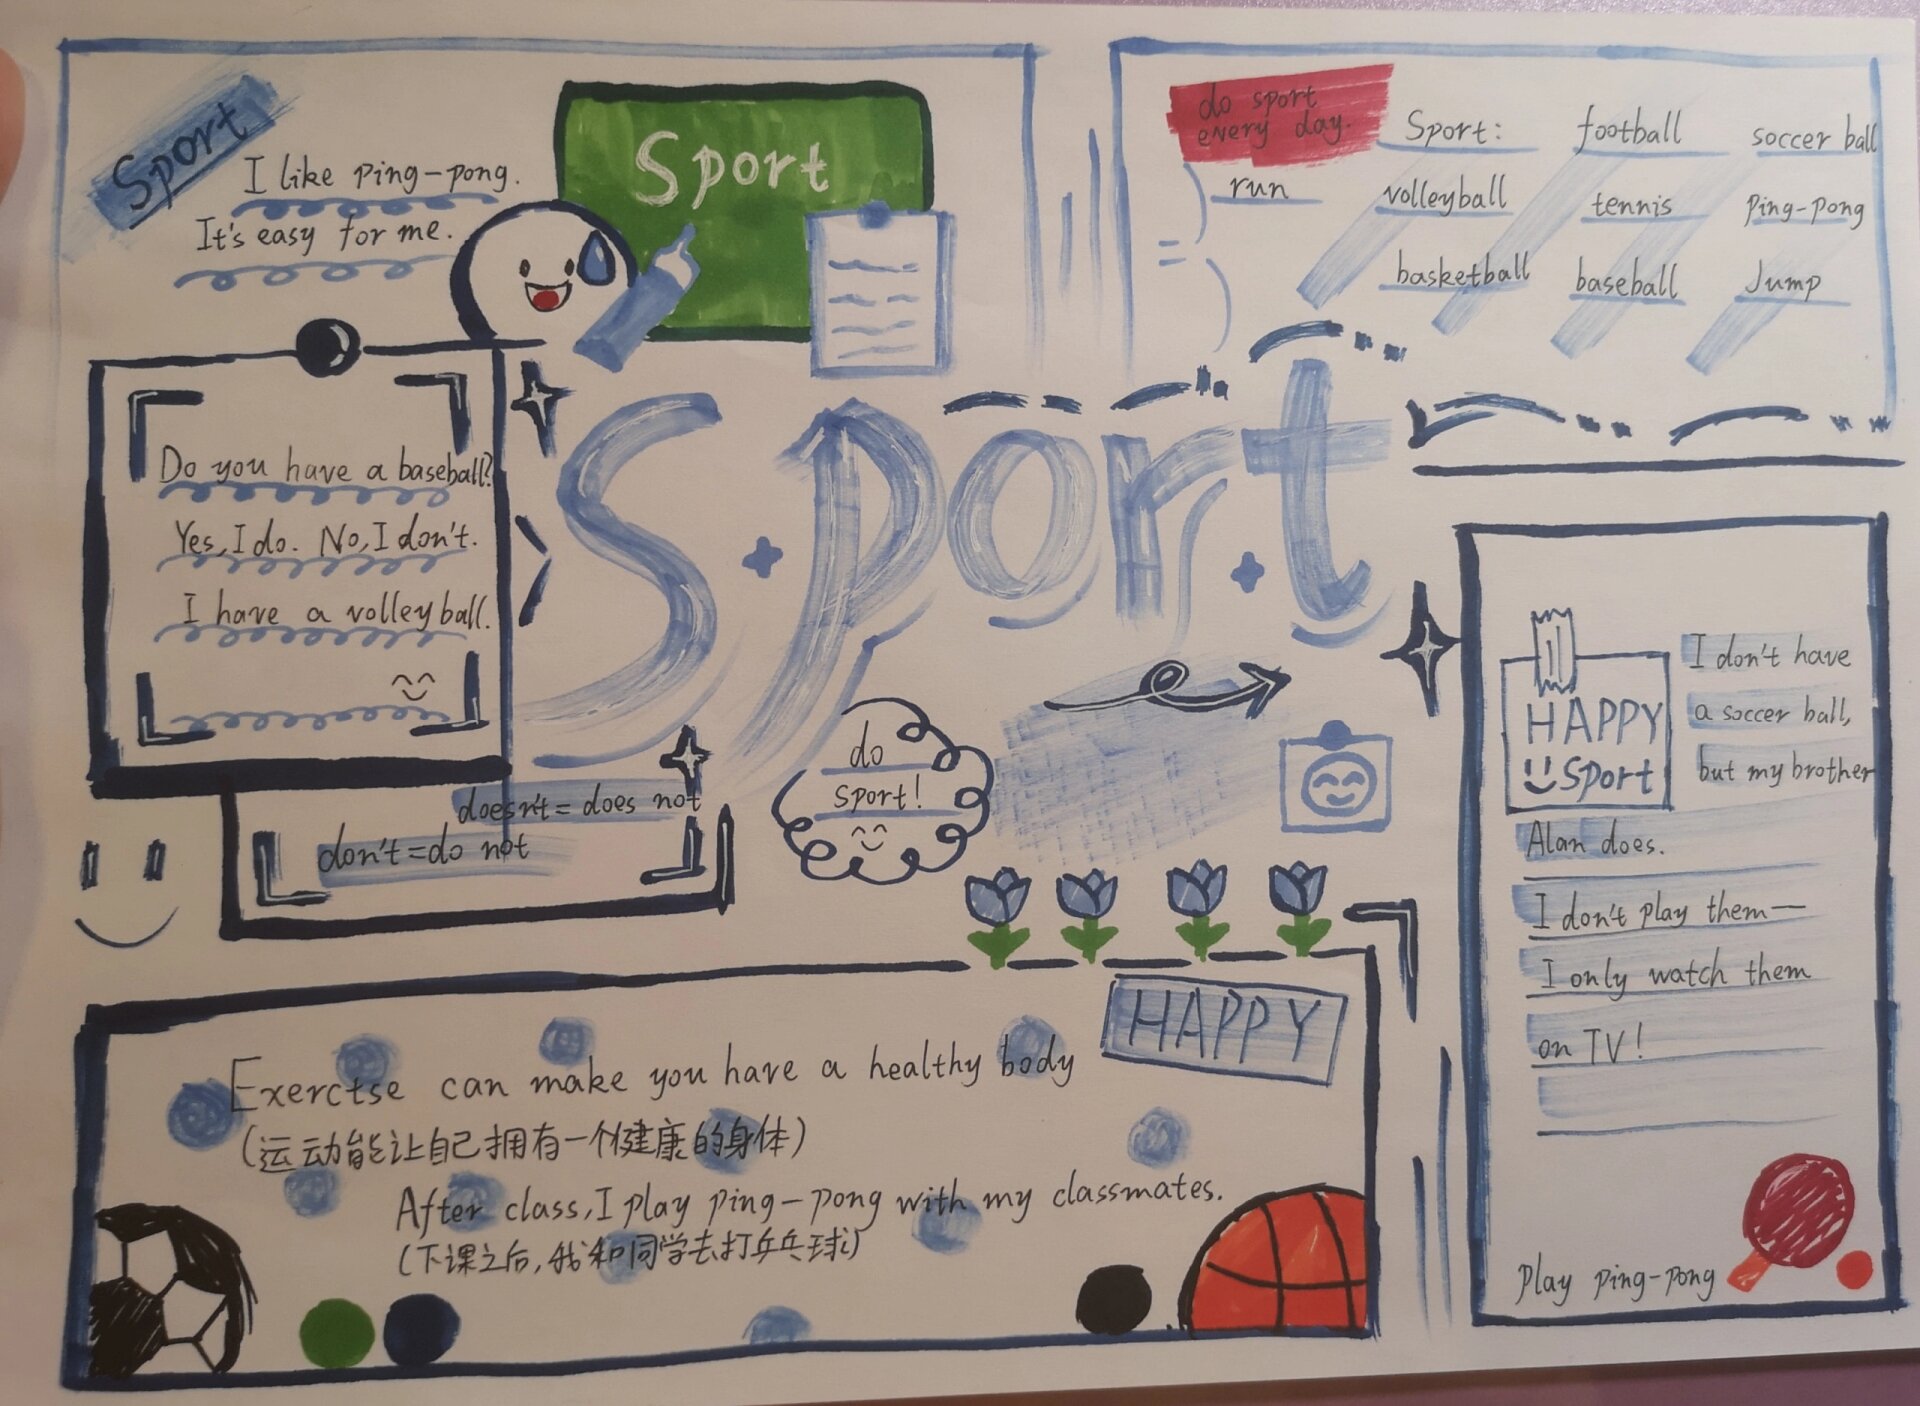 Sport
I like ping-pong.
It's easy for me.
Sport
do sport
every day.
Sport:
football
soccer ball
run
volleyball
tennis
ping-pong
basketball
baseball
Jump
Sport
Do you have a baseball?
Yes, I do. No, I don't.
I have a volleyball.
doesn't = does not
don't = do not
do
sport!
HAPPY
Sport
I don't have
a soccer ball,
but my brother
Alan does.
I don't play them—
I only watch them
on TV!
Play ping-pong
HAPPY
Exerctse can make you have a healthy body
(运动能让自己拥有一个健康的身体)
After class, I play ping-pong with my classmates.
(下课之后,我和同学去打乒乓球)